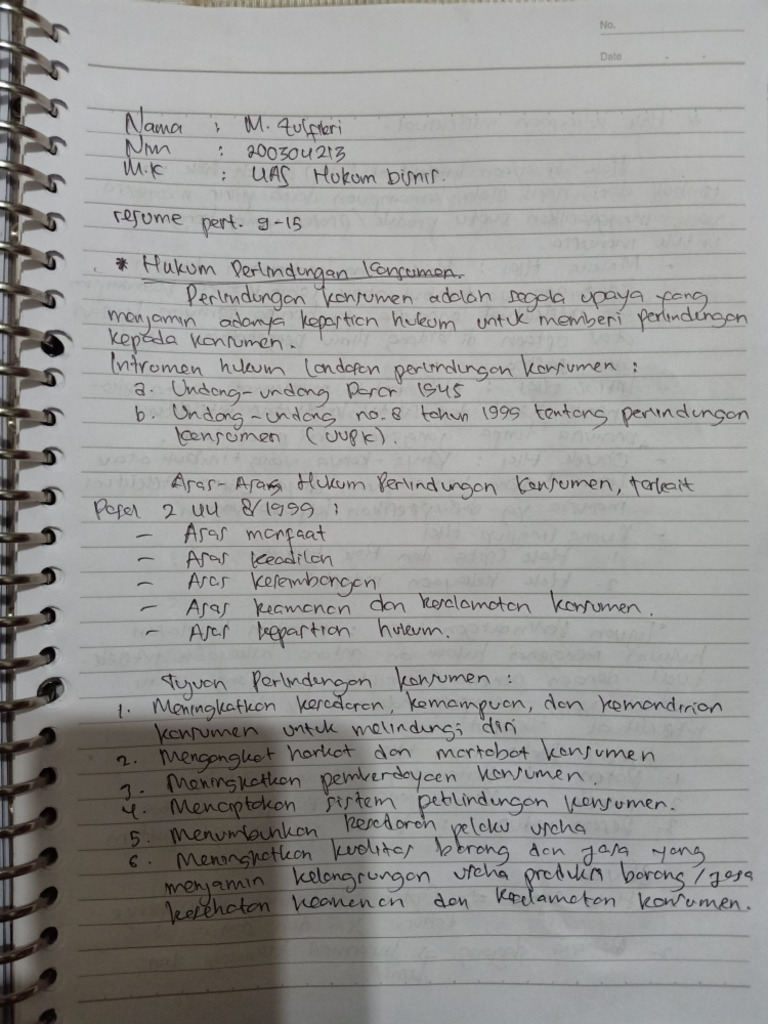 No.
Date
Nama : M. Zulfikri
Nim : 200304213
M.K : UAS Hukum bisnis.
resume pert. 9-15
* Hukum Perlindungan Konsumen.
Perlindungan konsumen adalah segala upaya yang
menjamin adanya kepastian hukum untuk memberi perlindungan
kepada konsumen.
Intrumen hukum landasan perlindungan konsumen :
a. Undang-undang Dasar 1945
b. Undang-undang no. 8 tahun 1999 tentang perlindungan
konsumen (UUPK).
Asas-Asas Hukum Perlindungan konsumen, terkait
Pasal 2 UU 8/1999 :
- Asas manfaat
- Asas keadilan
- Asas keseimbangan
- Asas keamanan dan keselamatan konsumen.
- Asas kepastian hukum.
Tujuan Perlindungan konsumen :
1. Meningkatkan kesadaran, kemampuan, dan kemandirian
konsumen untuk melindungi diri
2. Mengangkat harkat dan martabat konsumen
3. Meningkatkan pemberdayaan konsumen.
4. Menciptakan sistem perlindungan konsumen.
5. Menumbuhkan kesadaran pelaku usaha
6. Meningkatkan kualitas barang dan jasa yang
menjamin kelangsungan usaha produksi barang/jasa
kesehatan keamanan dan keselamatan konsumen.